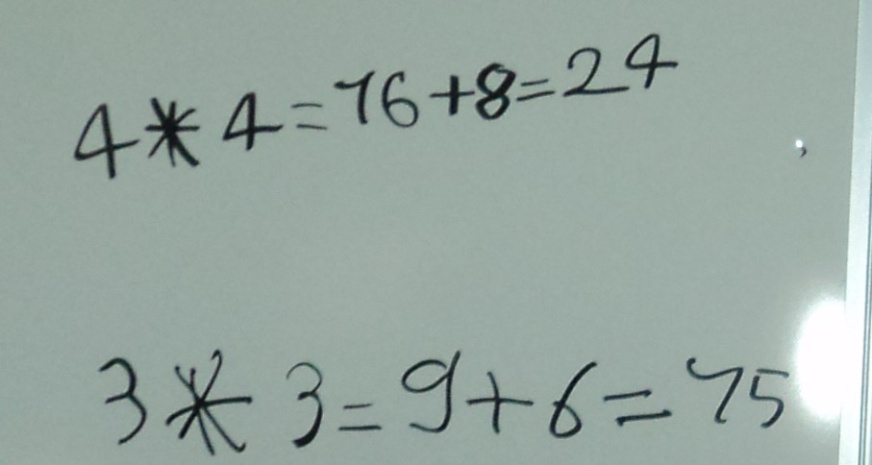 4*4=16+8=24
3*3=9+6=15